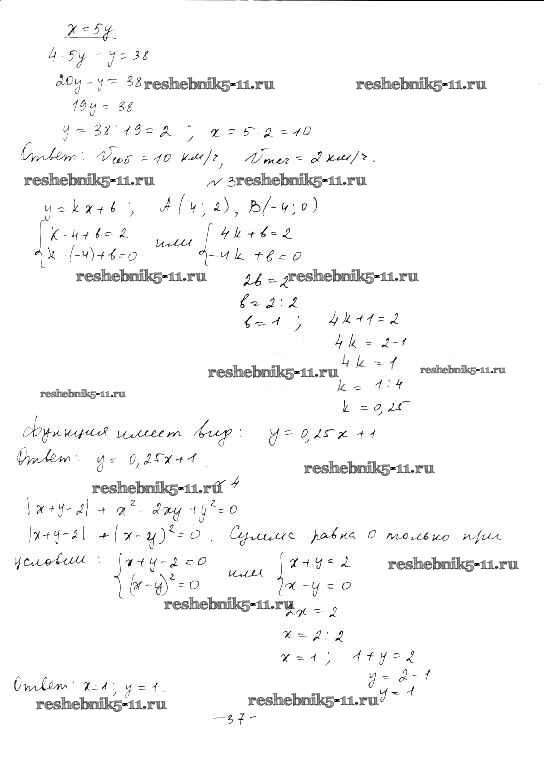 x = 5y
4·5y - y = 38
20y - y = 38 reshebnik5-11.ru reshebnik5-11.ru
19y = 38
y = 38 : 19 = 2 ; x = 5·2 = 10
Ответ: Vсоб = 10 км/ч, Vтеч = 2 км/ч.
reshebnik5-11.ru № 3 reshebnik5-11.ru
y = kx + b ; A(4; 2), B(-4; 0)
{ k·4 + b = 2 или { 4k + b = 2
{ k·(-4) + b = 0 { -4k + b = 0
reshebnik5-11.ru 2b = 2 reshebnik5-11.ru
b = 2 : 2
b = 1 ; 4k + 1 = 2
4k = 2 - 1
reshebnik5-11.ru 4k = 1 reshebnik5-11.ru
reshebnik5-11.ru k = 1 : 4
k = 0,25
Функция имеет вид: y = 0,25x + 1
Ответ: y = 0,25x + 1. reshebnik5-11.ru
reshebnik5-11.ru № 4
|x + y - 2| + x² - 2xy + y² = 0
|x + y - 2| + (x - y)² = 0. Сумма равна 0 только при
условии: { x + y - 2 = 0 или { x + y = 2 reshebnik5-11.ru
{ (x - y)² = 0 { x - y = 0
reshebnik5-11.ru 2x = 2
x = 2 : 2
x = 1 ; 1 + y = 2
Ответ: x = 1; y = 1. y = 2 - 1
reshebnik5-11.ru reshebnik5-11.ru y = 1
- 37 -